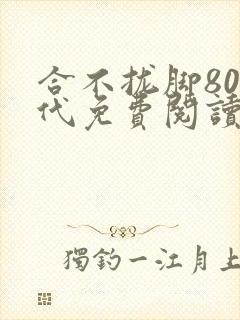 合不拢脚80
代免費閱讀
獨釣一江月上